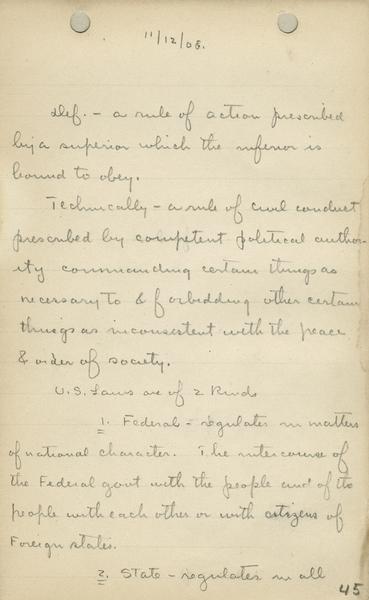 11/12/08.
Def. - a rule of action prescribed
by a superior which the inferior is
bound to obey.
Technically - a rule of civil conduct
prescribed by competent political author-
ity commanding certain things as
necessary to & forbidding other certain
things as inconsistent with the peace
& order of society.
U.S. Laws are of 2 Kinds
1. Federal - regulates in matters
of national character. The intercourse of
the Federal govt with the people and of the
people with each other or with citizens of
Foreign states.
2. State - regulates in all
45